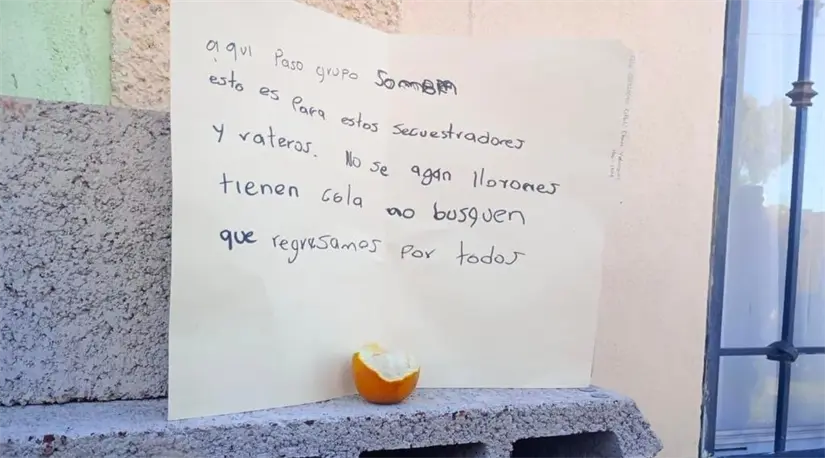 aqui Paso grupo Sombra
esto es Para estos secuestradores
y rateros. No se agan llorones
tienen cola no busquen
que regresamos por todos